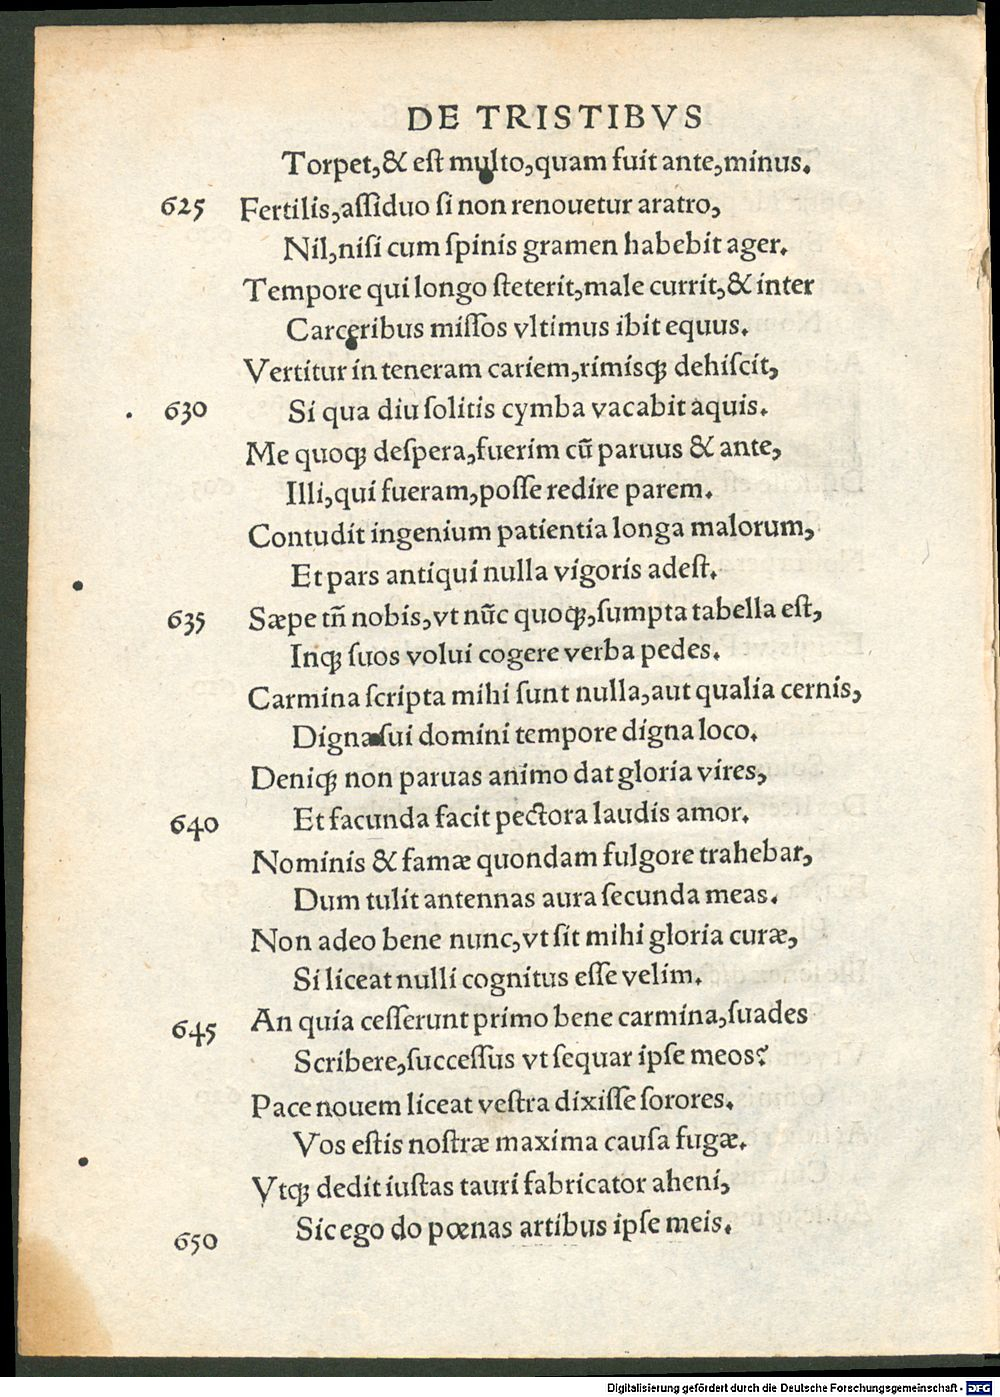 DE TRISTIBVS
Torpet,& eſt multo,quam fuit ante,minus.
625 Fertilis,aſſiduo ſi non renouetur aratro,
Nil,niſi cum ſpinis gramen habebit ager.
Tempore qui longo ſteterit,male currit,& inter
Carceribus miſſos vltimus ibit equus.
Vertitur in teneram cariem,rimisq; dehiſcit,
630 Si qua diu ſolitis cymba vacabit aquis.
Me quoq; deſpera,fuerim cū paruus & ante,
Illi,qui fueram,poſſe redire parem.
Contudit ingenium patientia longa malorum,
Et pars antiqui nulla vigoris adeſt.
635 Sæpe tñ nobis,vt nūc quoq;,ſumpta tabella eſt,
Inq; ſuos volui cogere verba pedes.
Carmina ſcripta mihi ſunt nulla,aut qualia cernis,
Digna ſui domini tempore digna loco.
Deniq; non paruas animo dat gloria vires,
640 Et facunda facit pectora laudis amor.
Nominis & famæ quondam fulgore trahebar,
Dum tulit antennas aura ſecunda meas.
Non adeo bene nunc,vt ſit mihi gloria curæ,
Si liceat nulli cognitus eſſe velim.
645 An quia ceſſerunt primo bene carmina,ſuades
Scribere,ſucceſſus vt ſequar ipſe meos?
Pace nouem liceat veſtra dixiſſe ſorores.
Vos eſtis noſtræ maxima cauſa fugæ.
Vtq; dedit iuſtas tauri fabricator aheni,
650 Sic ego do pœnas artibus ipſe meis.
Digitalisierung gefördert durch die Deutsche Forschungsgemeinschaft - DFG